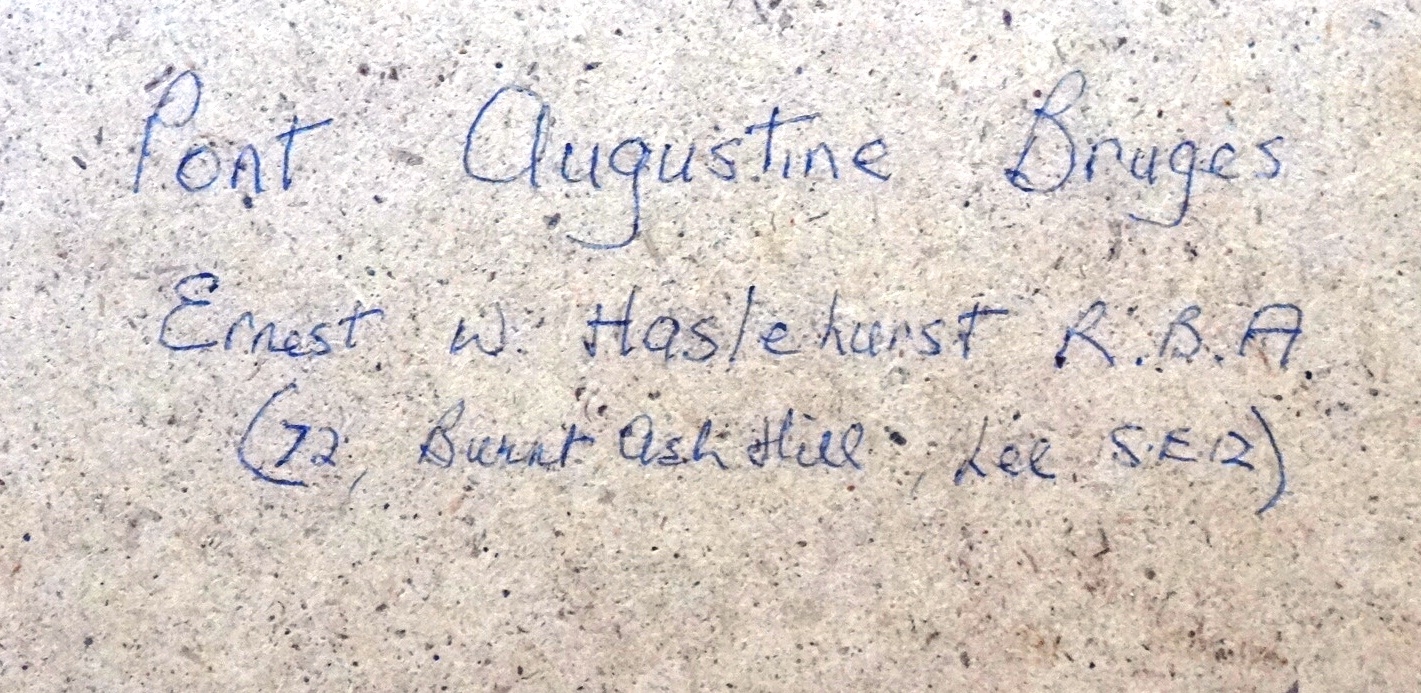 Pont Augustine Bruges
Ernest W. Haslehurst R.B.A.
(72, Burnt Ash Hill, Lee S.E.12)